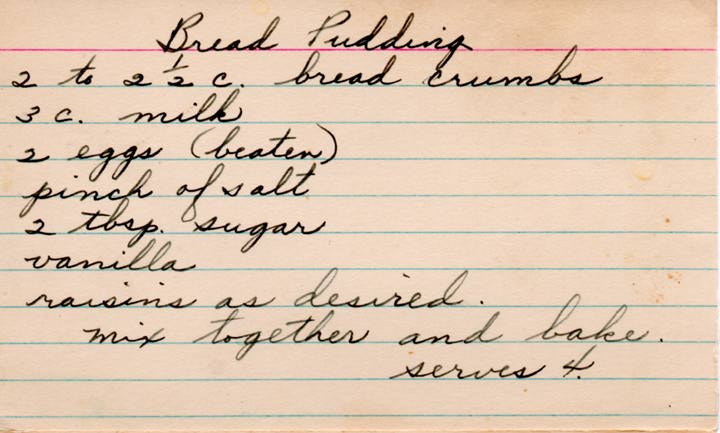 Bread Pudding
2 to 2 1/2 c. bread crumbs
3 c. milk
2 eggs (beaten)
pinch of salt
2 tbsp. sugar
vanilla
raisins as desired.
mix together and bake.
serves 4.